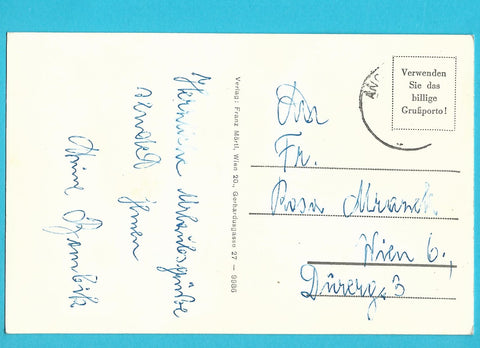 Herzliche Urlaubsgrüße
sendet Ihnen
Verlag: Franz Mörtl, Wien 20., Gerhardusgasse 27 — 9086
Verwenden
Sie das
billige
Grußporto!
An
Fr.
Rosa Mraxek
Wien 6.,
Dürerg. 3